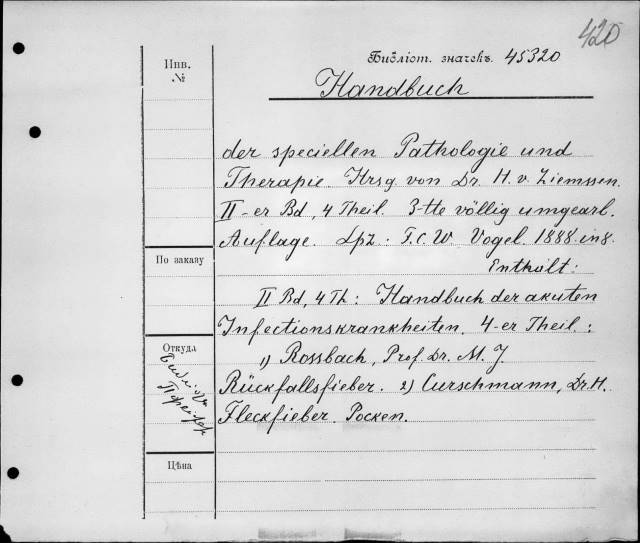 420
Инв. №
Библіот. значекъ. 45320
Handbuch
der speciellen Pathologie und
Therapie. Hrsg. von Dr. H. v. Ziemssen.
II-er Bd, 4 Theil. 3-tte völlig umgearb.
Auflage. Lpz: F. C. W. Vogel. 1888. in 8.
Enthält:
По заказу
II Bd, 4 Th: Handbuch der akuten
Infectionskrankheiten. 4-er Theil:
Откуда
1) Rossbach, Prof. Dr. M. J.
Rückfallsfieber. 2) Curschmann, Dr. H.
Fleckfieber. Pocken.
Цѣна